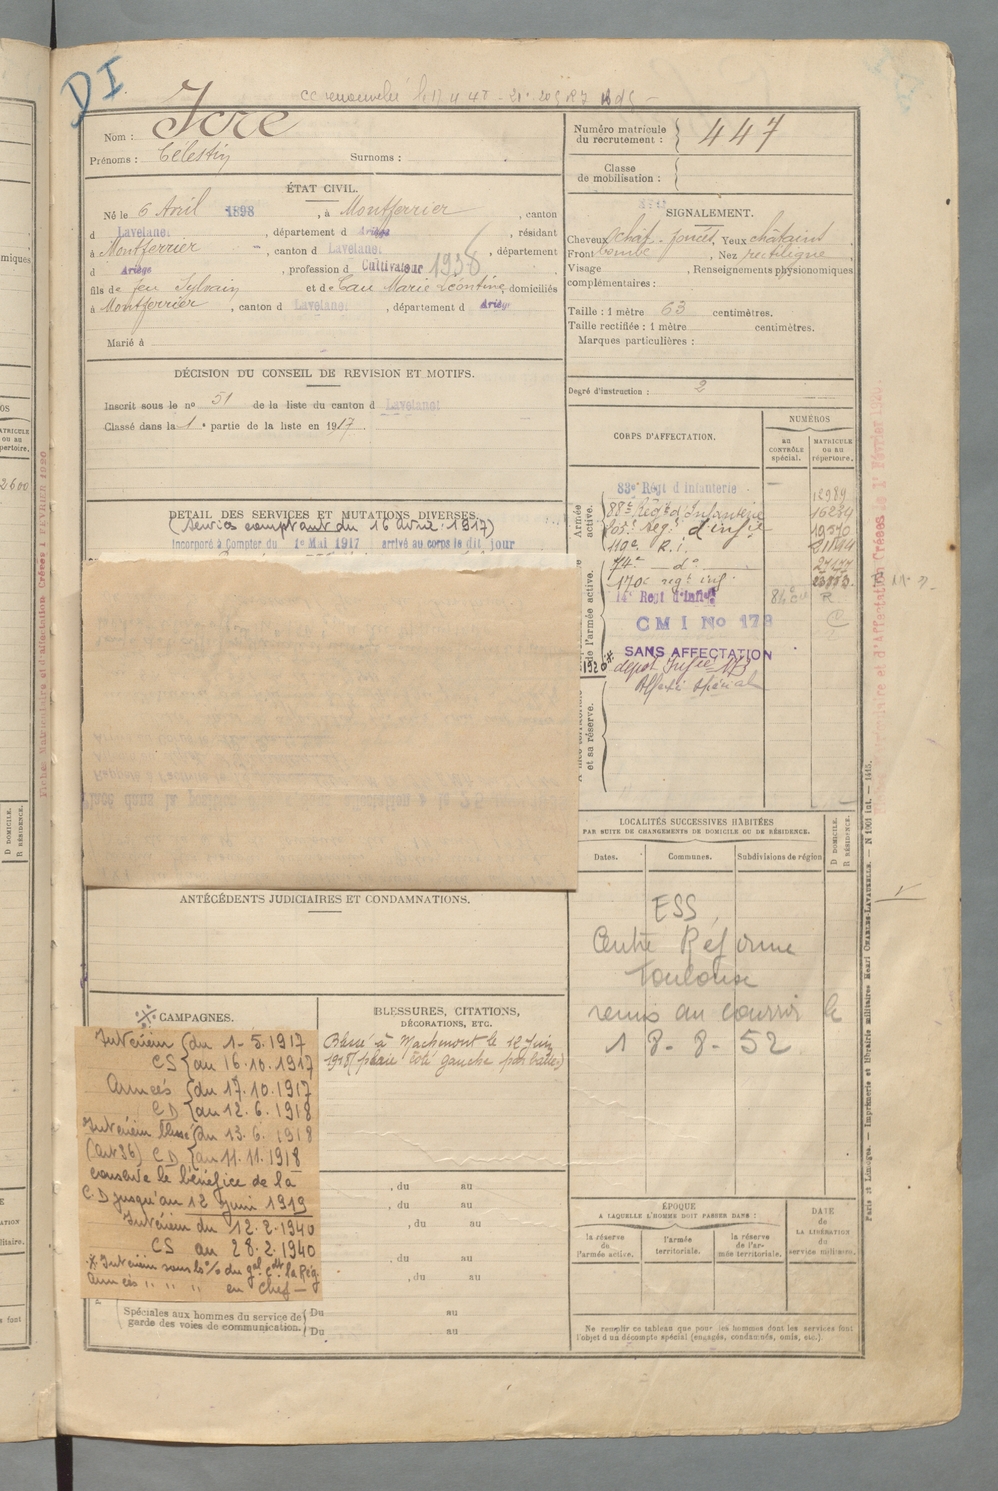 DI
Nom : Icre
Prénoms : Célestin Surnoms :
Numéro matricule du recrutement : 447
Classe de mobilisation :
ÉTAT CIVIL.
Né le 6 Avril 1898, à Montferrier, canton
d Lavelanet, département d Ariège, résidant
à Montferrier, canton d Lavelanet, département
d Ariège, profession d Cultivateur 1938
fils de feu Sylvain et de Cau Marie Léontine, domiciliés
à Montferrier, canton d Lavelanet, département d Ariège
Marié à
SIGNALEMENT.
Cheveux chât. foncés Yeux châtains
Front bombé, Nez rectiligne
Visage , Renseignements physionomiques
complémentaires :
Taille : 1 mètre 63 centimètres.
Taille rectifiée : 1 mètre centimètres.
Marques particulières :
Degré d'instruction : 2
DÉCISION DU CONSEIL DE REVISION ET MOTIFS.
Inscrit sous le no 51 de la liste du canton d Lavelanet
Classé dans la 1e partie de la liste en 1917.
DÉTAIL DES SERVICES ET MUTATIONS DIVERSES.
(Services comptant du 16 avril 1917)
Incorporé à Compter du 1e Mai 1917 arrivé au corps le dit jour
CORPS D'AFFECTATION.
NUMÉROS
au CONTRÔLE spécial.
MATRICULE ou au répertoire.
Armée active.
83e Régt d'Infanterie 12989
88e Régt d'Infanterie 16234
19570
119e R.i.
74e do
170e regt inf.
14e Regt d'Infie
CMI No 178
SANS AFFECTATION
depot Infie 173
Affecté spécial
de l'armée active.
et sa réserve.
LOCALITÉS SUCCESSIVES HABITÉES
PAR SUITE DE CHANGEMENTS DE DOMICILE OU DE RÉSIDENCE.
Dates. Communes. Subdivisions de région
D DOMICILE.
R RÉSIDENCE.
ESS
Centre Réforme
Toulouse
remis au courrier le
1 8-8-52
ANTÉCÉDENTS JUDICIAIRES ET CONDAMNATIONS.
CAMPAGNES.
Intérieur du 1-5.1917
CS au 16.10.1917
Armées du 17.10.1917
CD au 12.6.1918
Intérieur blessé du 13.6.1918
(art 36) CD au 11.11.1918
conserve le bénéfice de la
C.D jusqu'au 12 juin 1919
Intérieur du 12.2.1940
CS au 28.2.1940
* Intérieur sous les o/ du gal cdt la Rég.
Armées " " " en Chef
BLESSURES, CITATIONS,
DÉCORATIONS, ETC.
Blessé à Machemont le 12 Juin
1918 (plaie côté gauche par balle)
, du au
, du au
, du au
, du au
, du au
Spéciales aux hommes du service de garde des voies de communication.
Du au
Du au
ÉPOQUE
A LAQUELLE L'HOMME DOIT PASSER DANS :
la réserve de l'armée active.
l'armée territoriale.
la réserve de l'armée territoriale.
DATE
de
LA LIBÉRATION
du
service militaire.
Ne remplir ce tableau que pour les hommes dont les services font
l'objet d'un décompte spécial (engagés, condamnés, omis, etc.).
Paris et Limoges. — Imprimerie et librairie militaires Henri CHARLES-LAVAUZELLE.